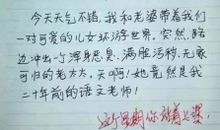 今天天气不错，我和老婆带着我们
一对可爱的儿女环游世界，突然，路
边冲出一个浑身恶臭、满脸污秽、无家
可归的老太太，天啊！她竟然是我
二十年前的语文老师！
这个星期你站着上课